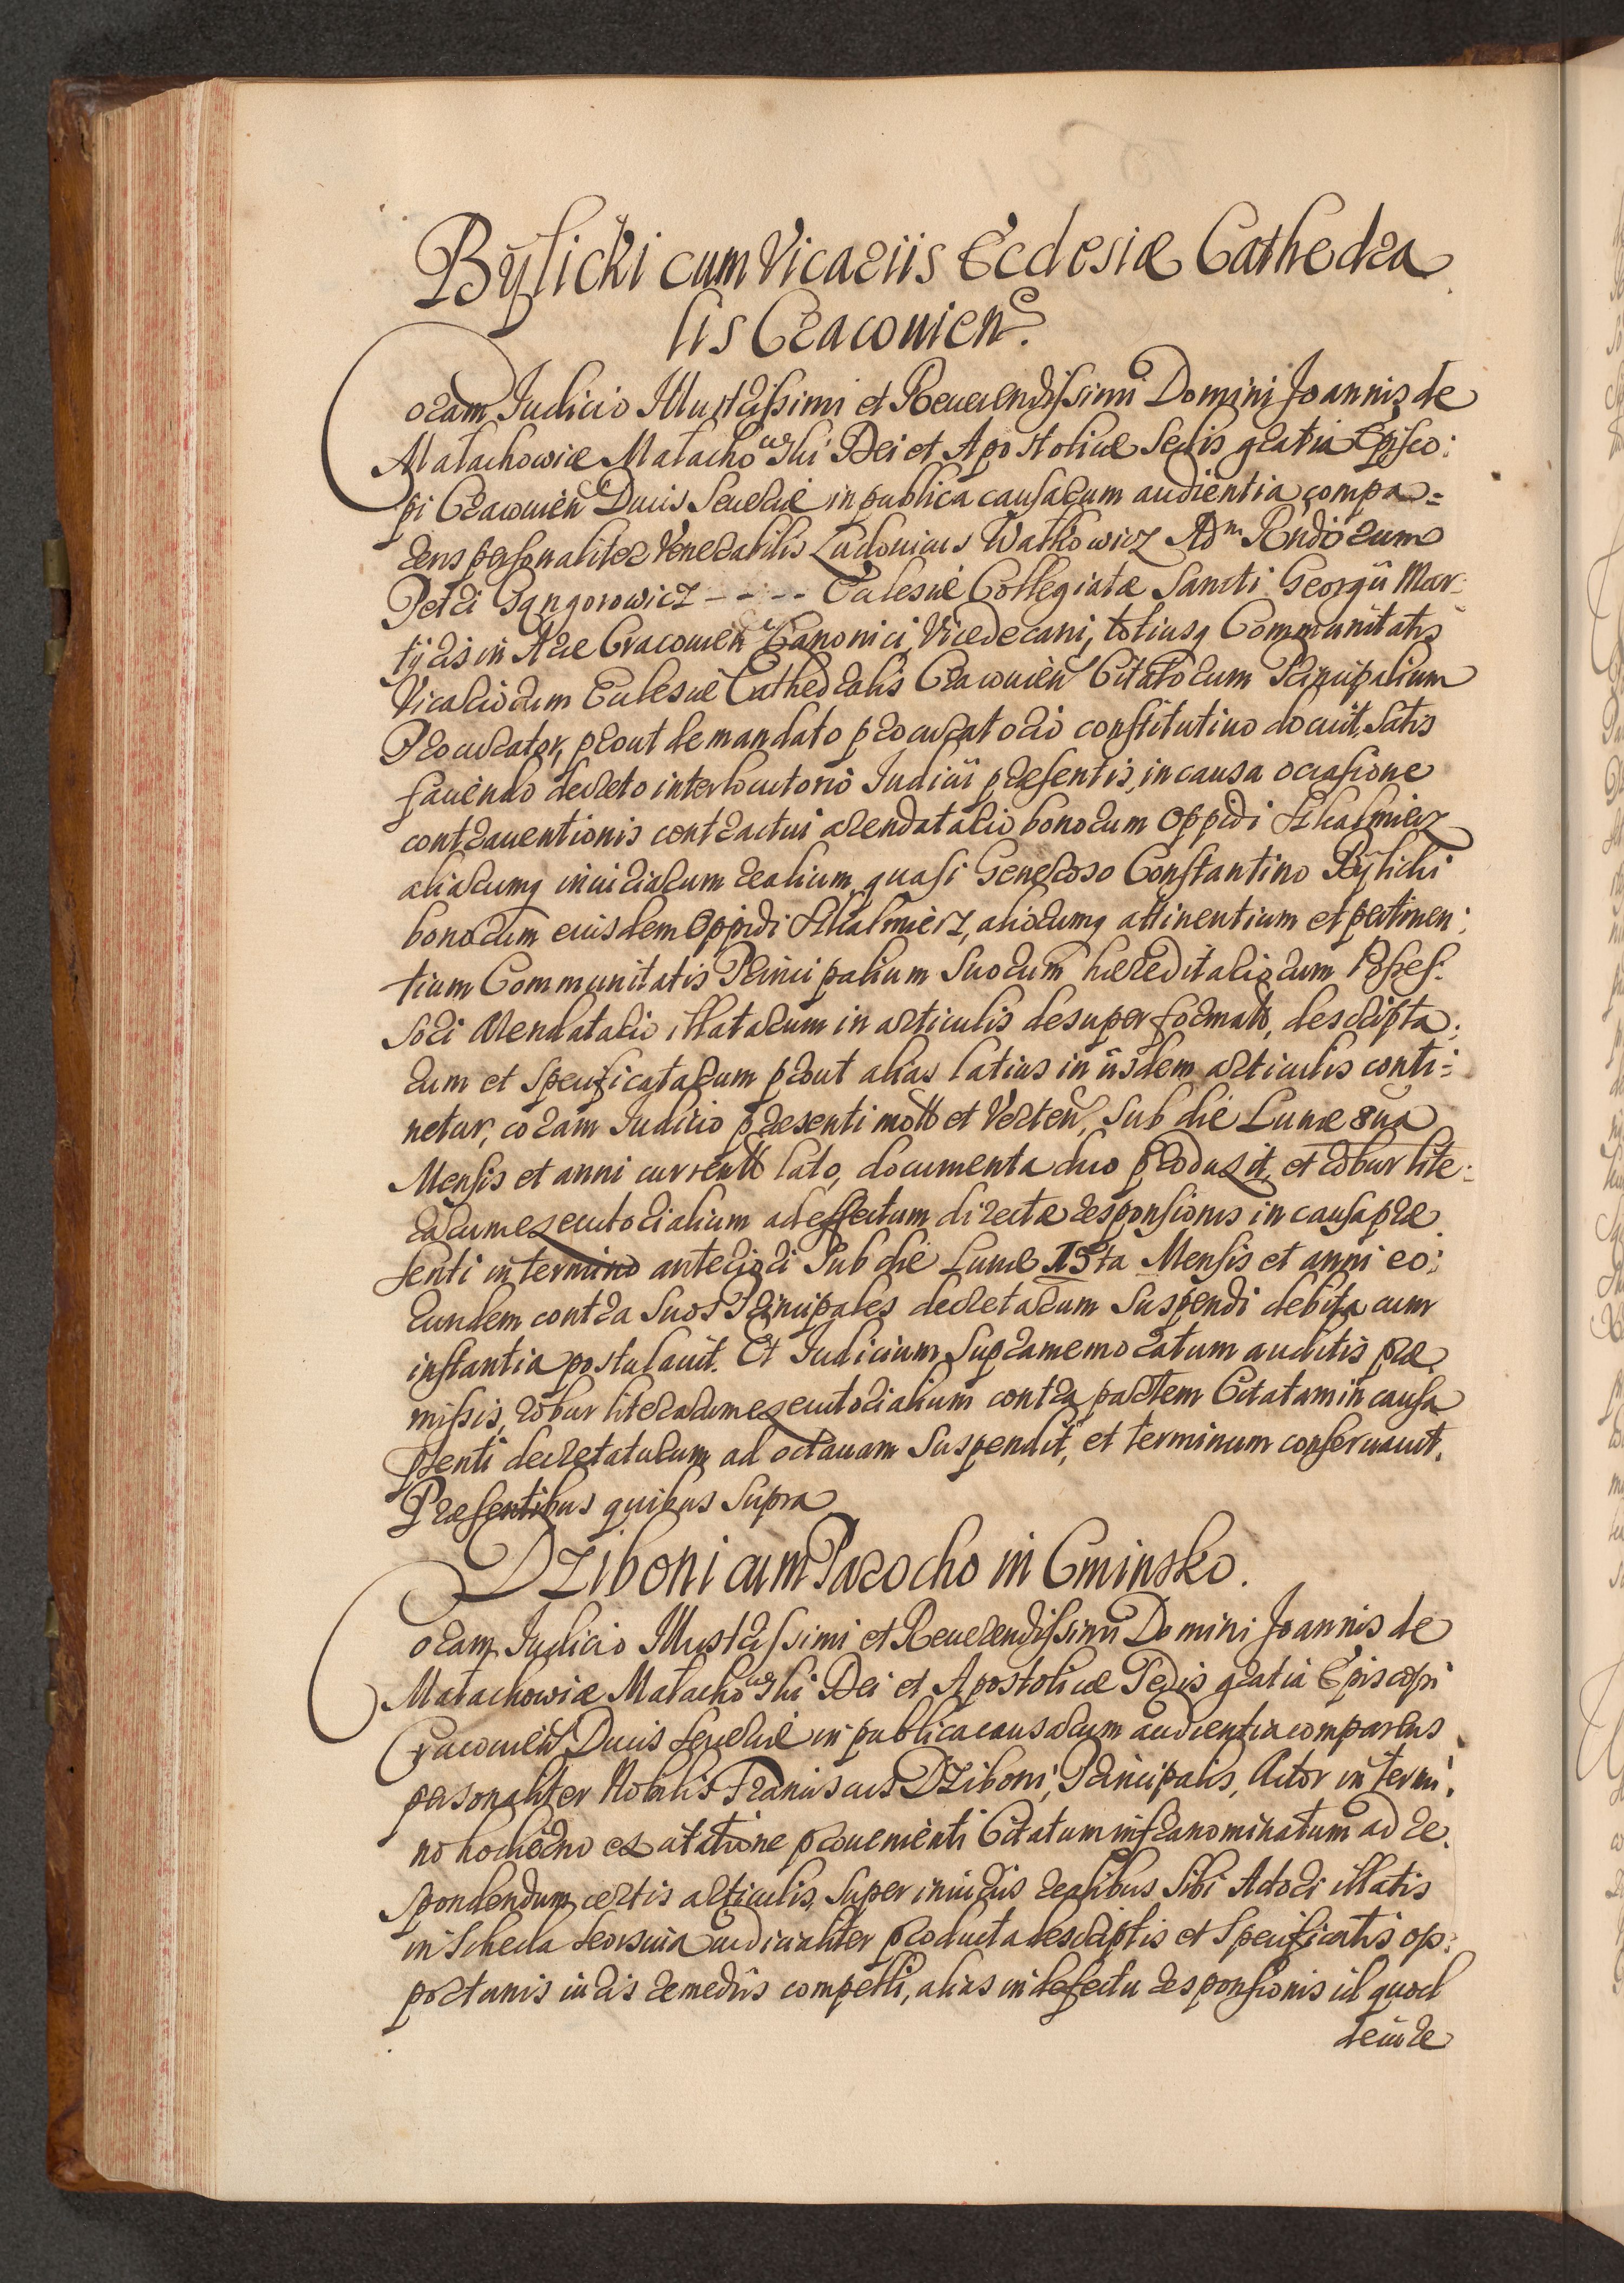 Bÿlicki cum Vicariis Ecclesiæ Cathedra
lis Cracouien.
Coram Judicio Illustrissimi et Reuerendissimi Domini Joannis de
Małachowice Małachowski Dei et Apostolicæ Sedis gratia Episco:
pi Cracouien Ducis Seueriæ in publica causarum audientia compa=
rens personaliter Venerabilis Ludouicus Watkowicz Adm Rndorum
Petri Gągorowicz - - - - - Ecclesiæ Collegiatæ Sancti Georgii Mar:
tÿris in Arce Cracouien Canonici, Vicedecani, totiusq Communitatis
Vicariorum Ecclesiæ Cathedralis Cracouien Citatorum Principalium
Procurator, prout de mandato procuratorio constitutiuo docuit, satis
faciendo decreto interlocutorio Judicii præsentis, in causa occasione
contrauentionis contractui arendatario bonorum Oppidi Skalmierz
aliarumq iniuriarum realium, quasi Generoso Constantino Bÿlicki
bonorum eiusdem Oppidi Skalmierz, aliorumq attinentium et pertinen:
tium Communitatis Principalium Suorum hæreditariorum Posses:
sori Arendatario illatarum in articulis desuper formatis, descripta:
rum et specificatarum prout alias latius in iisdem articulis conti:
netur, coram Judicio præsenti motto et Verten, sub die Lunæ 8ua
Mensis et anni currentt lato, documenta duo produxit, et robur lite:
rarum exeuutorialium ad effectum directæ responsionis in causa præ
senti in termino anteriori sub die Lunæ 15ta Mensis et anni eo:
rundem contra Suos Principales decretarum suspendi debita cum
instantia postulauit. Et Judicium supramemoratum auditis præ
missis, robur literarum exeuutorialium contra partem Citatam in causa
psenti decretatarum ad octauam suspendit, et terminum conseruauit.
Præsentibus quibus supra
Dziboni cum Parocho in Cminsko.
Coram Judicio Illustrissimi et Reuerendissimi Domini Joannis de
Małachowice Małachowski Dei et Apostolicæ Sedis gratia Episcopi
Cracouien Ducis Seueriæ in publica causarum audientia comparens
personaliter Nobilis Franciscus Dziboni, Principalis, Actor in termi
no hodierno ex citatione prouenienti Citatum infranominatum ad re
spondendum certis articulis, super iniuriis realibus sibi Actori illatis
in scheda seorsiua iudicialiter producta descriptis et specificatis op:
portunis iuris remediis compelli, alias in defectu responsionis id quod
de iure